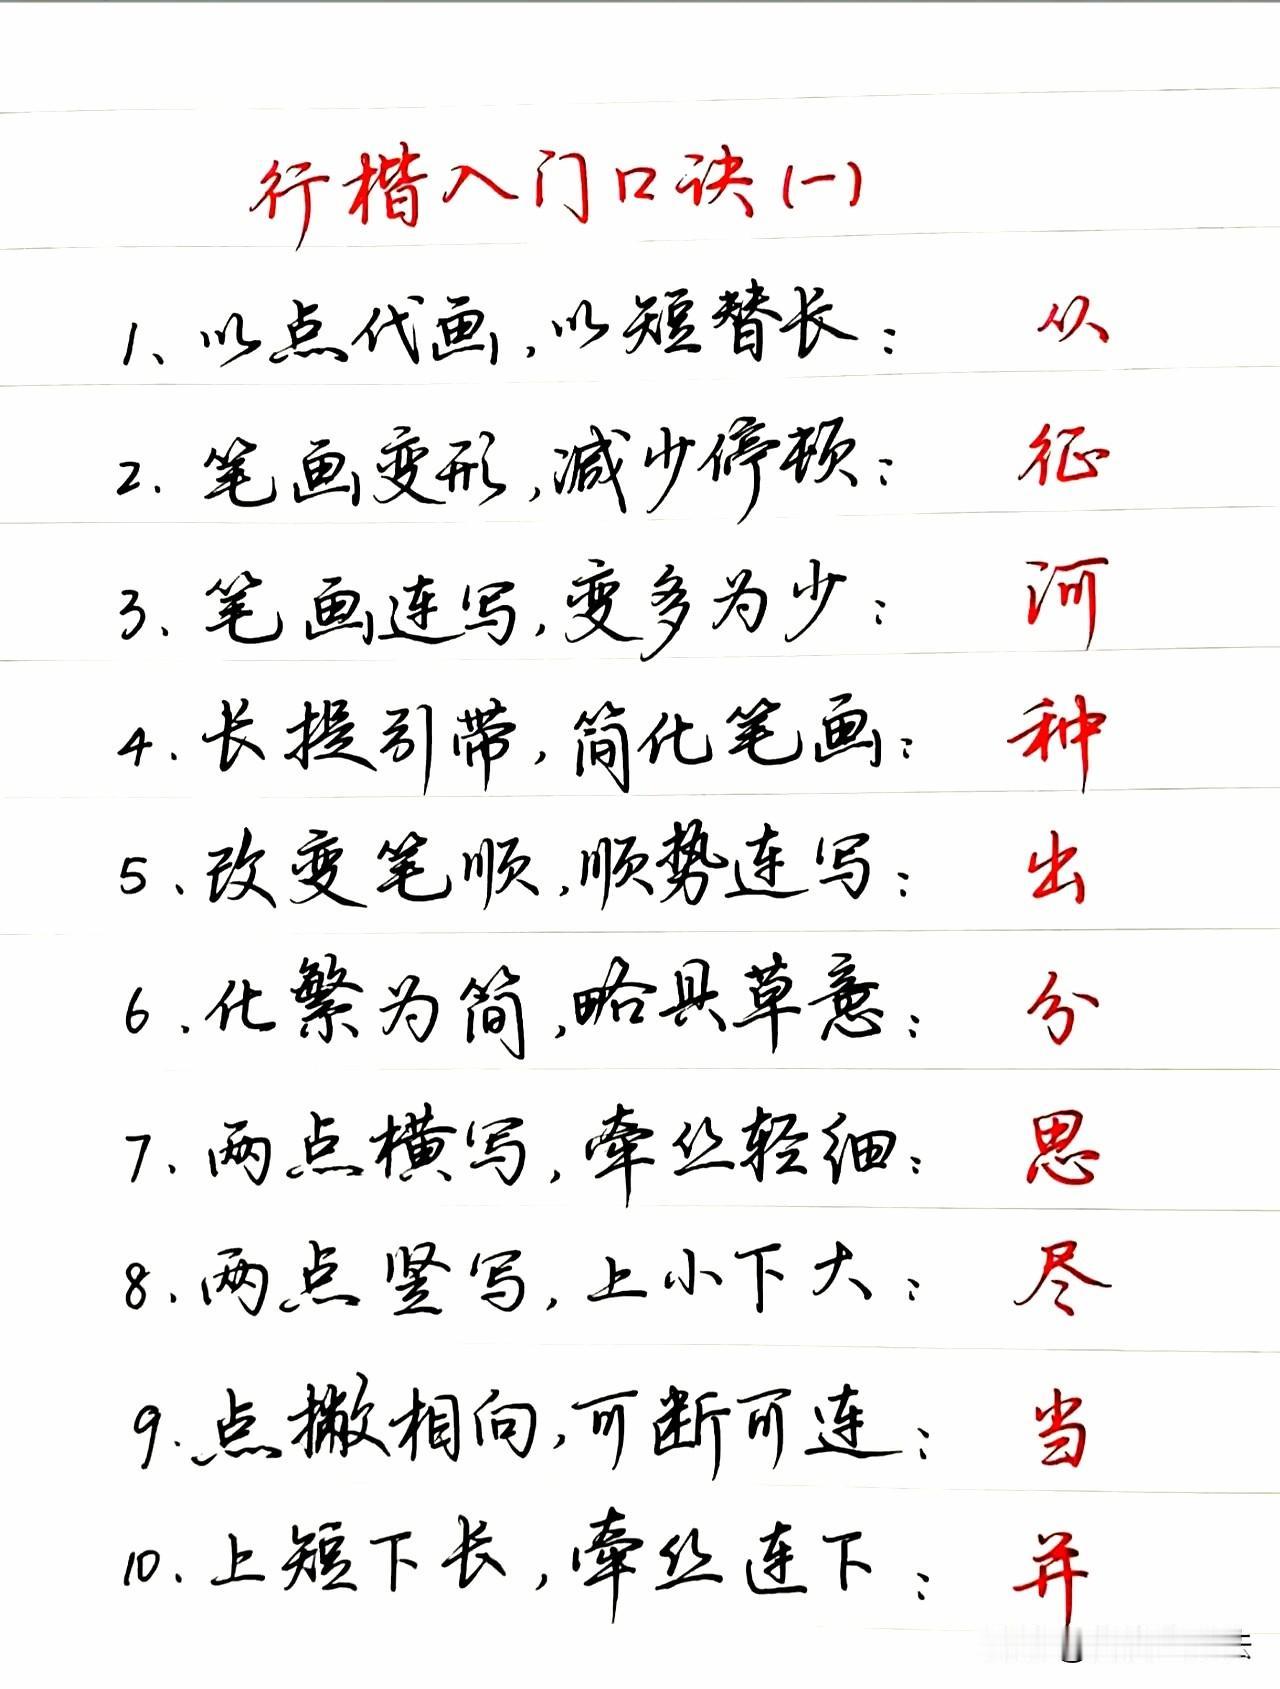 行楷入门口诀(一)
1、以点代画,以短替长: 从
2. 笔画变形,减少停顿: 征
3、笔画连写,变多为少: 河
4.长提引带,简化笔画: 种
5、改变笔顺,顺势连写: 出
6.化繁为简,略具草意: 分
7、两点横写,牵丝轻细: 思
8.两点竖写,上小下大: 尽
9.点撇相向,可断可连: 当
10、上短下长,牵丝连下: 并